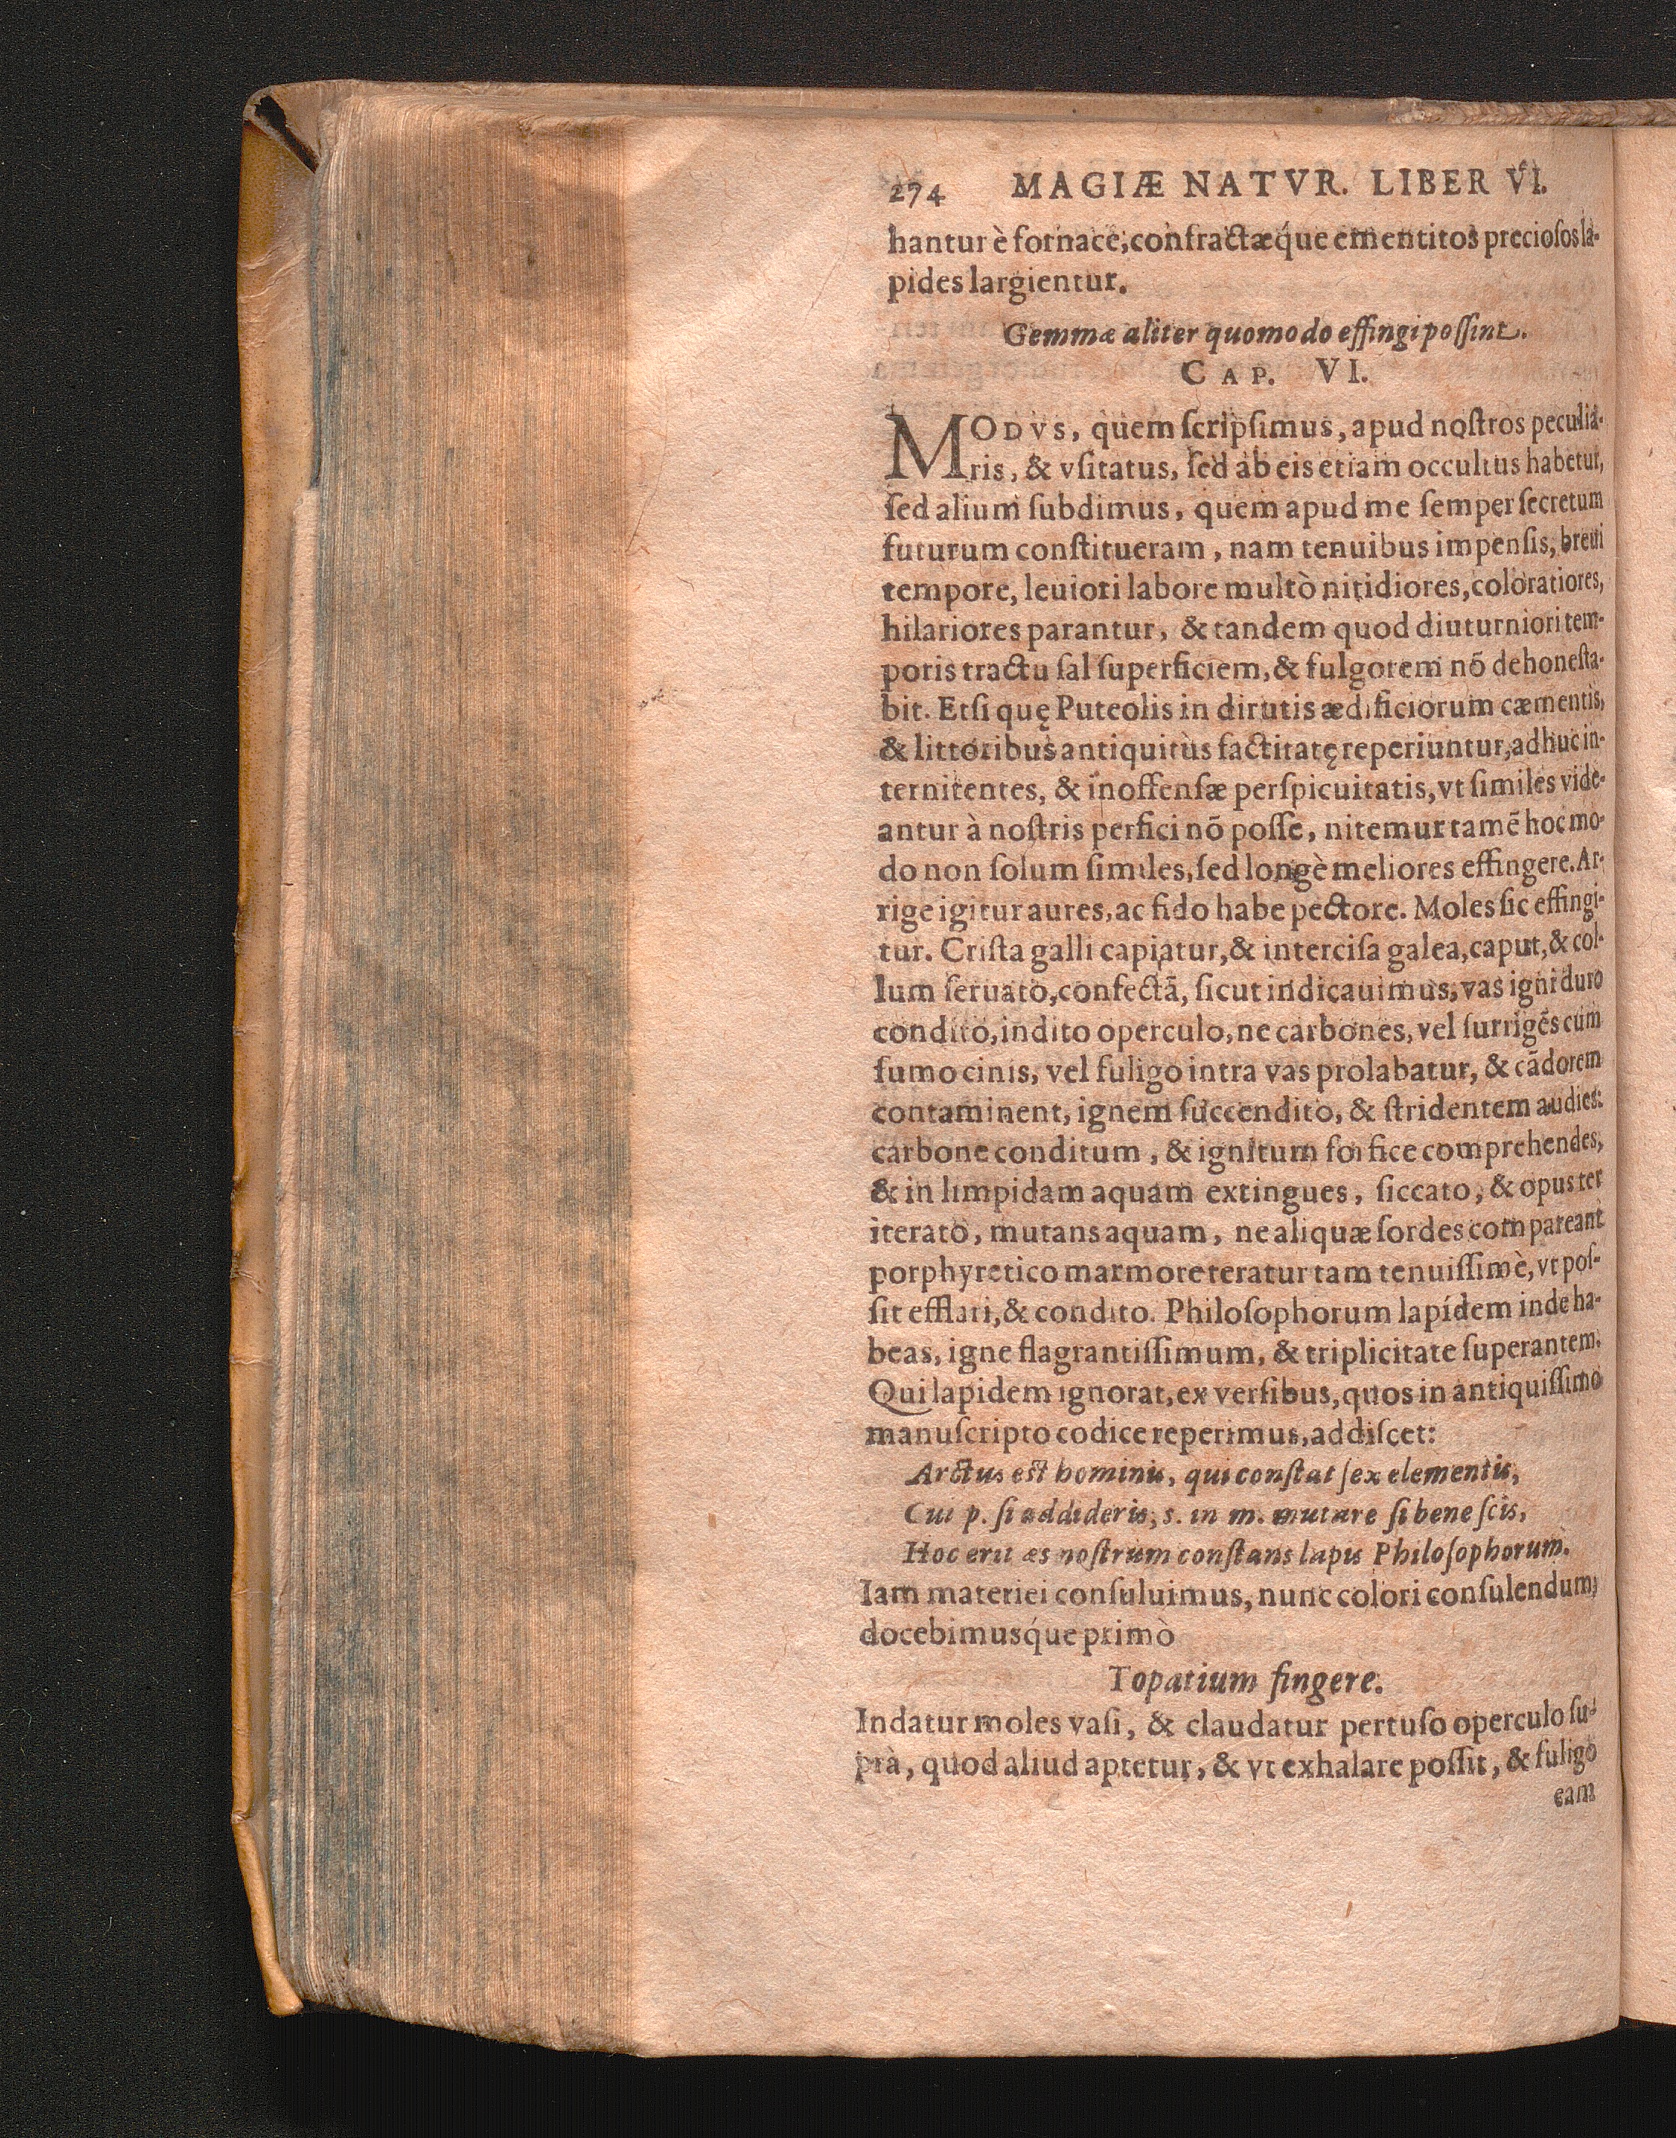 274 MAGIÆ NATVR. LIBER VI.
hantur è fornace, confractæq́ue ementitos precioſos la-
pides largientur.
Gemmæ aliter quomodo effingi poſſint.
CAP. VI.
MODVS, quem ſcripſimus, apud noſtros peculia-
ris, & vſitatus, ſed ab eis etiam occultus habetur,
ſed alium ſubdimus, quem apud me ſemper ſecretum
futurum conſtitueram, nam tenuibus impenſis, breui
tempore, leuiori labore multò nitidiores, coloratiores,
hilariores parantur, & tandem quod diuturniori tem-
poris tractu ſal ſuperficiem, & fulgorem nō dehoneſta-
bit. Etſi quę Puteolis in dirutis ædificiorum cæmentis,
& littoribus antiquitùs factitatę reperiuntur, adhuc in-
ternitentes, & inoffenſæ perſpicuitatis, vt ſimiles vide-
antur à noſtris perfici nō poſſe, nitemur tamē hoc mo-
do non ſolum ſimiles, ſed longè meliores effingere. Ar-
rige igitur aures, ac fido habe pectore. Moles ſic effingi-
tur. Criſta galli capiatur, & interciſa galea, caput, & col-
lum ſeruato, confectā, ſicut indicauimus, vas igni duro
condito, indito operculo, ne carbones, vel ſurrigēs cum
fumo cinis, vel fuligo intra vas prolabatur, & cādorem
contaminent, ignem ſuccendito, & ſtridentem audies:
carbone conditum, & ignitum forfice comprehendes,
& in limpidam aquam extingues, ſiccato, & opus ter
iterato, mutans aquam, ne aliquæ ſordes compareant
porphyretico marmore teratur tam tenuiſſimè, vt poſ-
ſit efflari, & condito. Philoſophorum lapídem inde ha-
beas, igne flagrantiſſimum, & triplicitate ſuperantem.
Qui lapidem ignorat, ex verſibus, quos in antiquiſſimo
manuſcripto codice reperimus, addiſcet:
Arctus eſt hominis, qui conſtat ſex elementis,
Cui p. ſi addideris, s. in m. mutare ſi bene ſcis,
Hoc erit æs noſtrum conſtans lapis Philoſophorum.
Iam materiei conſuluimus, nunc colori conſulendum,
docebimusq́ue primò
Topatium fingere.
Indatur moles vaſi, & claudatur pertuſo operculo ſu-
prà, quod aliud aptetur, & vt exhalare poſſit, & fuligo
eam